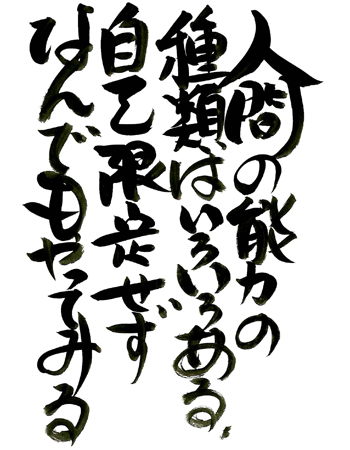 人間の能力の
種類はいろいろある.
自己限定せず
なんでもやってみる